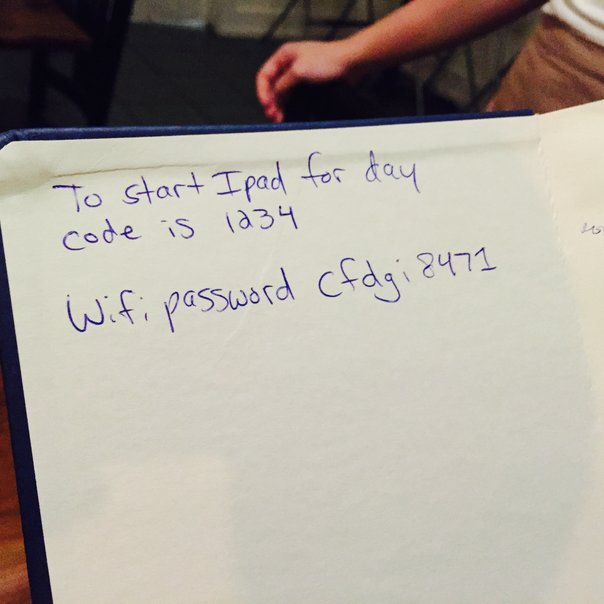 To start Ipad for day
code is 1234
Wifi password cfdgi8471